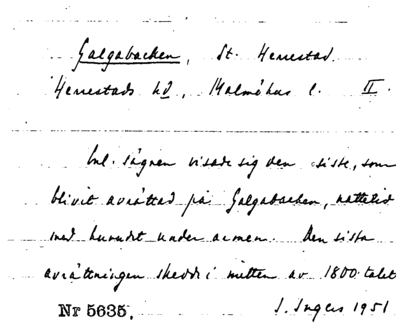 Galgabacken, St. Herrestad.
Herrestads hd, Malmöhus l. II.
Enl. sägnen visade sig den siste, som
blivit avrättad på Galgabacken, nattetid
med huvudet under armen. Den sista
avrättningen skedde i mitten av 1800-talet
Nr 5635. I. Ingers 1951